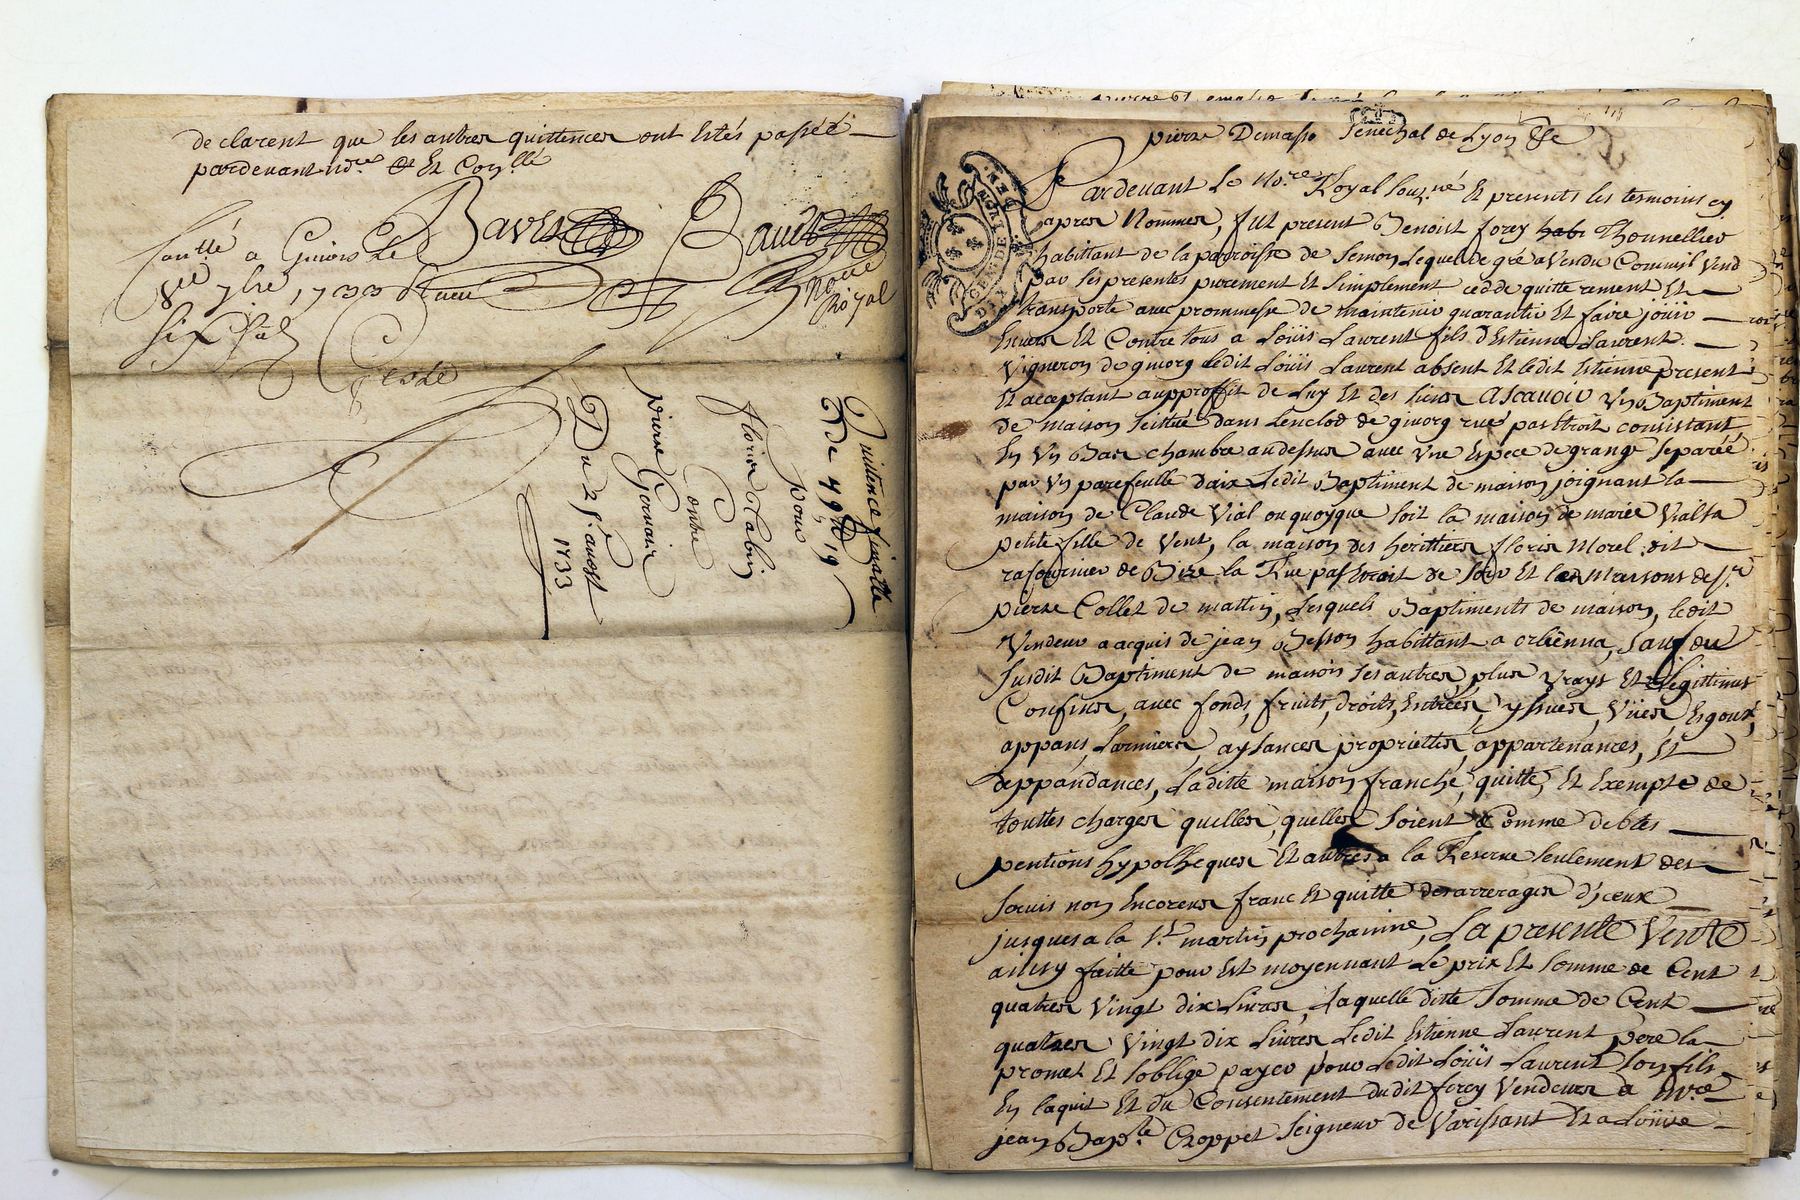 declarent que les autres quittences ont Estés passéé
pardevant no.re Et Con.llé
Bavet Bavet
Con.llé a Givors Le
Notre Royal
8.re 1733 Receu
six sols
Quittence finalle
De 49.tt 19
pour
florin
Contre
pierre Gervais
Du 25.e aoust
1733
pierre Demasso Senechal de Lyon &c
Pardevant Le No.re Royal Souz.né Et presents les tesmoins cy
apres Nommer, fut present Benoist forey habi Thounellier
habittant de la parroisse de Semon Lequel de gré a Vendu Comme il Vend
par ses presentes purement Et simplement cedde quitte remet Et
transporte avec prommesse de maintenir guarantir Et faire joüir
Envers Et Contre tous a Loüis Laurent fils d'Estienne Laurent
Vigneron de givorg Ledit Loüis Laurent absent Et ledit Estienne present
Et acceptant au proffit de Luy Et des siens Ascavoir Un Baptiment
de maison scittué dans Lenclos de givorg rue pas Etroit consistant
En Un Bas chambre au dessus avec Une Espece de grange separéé
par Un parefeulle daix Ledit Baptiment de maison joignant la
maison de Claude Vial ou quoyque soit la maison de marie Vial sa
petite fille de Vent, la maison des herittiers floris Morel dit
rafournier de Bize la Rue pas Etroit de soir Et les Maisons de s.r
pierre Collet de mattin, Lesquels Baptiments de maison, ledit
Vendeur a acquis de jean Besson habittant a orliënna, sauf du
susdit Baptiment de maison ses autres plus Vrays Et Legittimes
Confins, avec fonds, fruits, droits, Entréés, yssues, Vües, Esgoux,
appans, Larmiers, aysances, proprietter, appartenances, Et
deppandances, Laditte maison franche, quitte, Et Exempte de
touttes charges quelles, quelles soient Comme debtes
pentions hypotheques Et autres a la Reserve seulement des
servis non Encoreus franc Et quitte des arrerages d'jceux
jusques a la S.t martin prochainne, La presente Vente
ainsy faitte pour Et moyennant Le prix Et somme de Cent
quatres Vingt dix Livres, Laquelle ditte somme de Cent
quatres Vingt dix Livres Ledit Estienne Laurent pere la
promet Et soblige payer pour Ledit Loüis Laurent son fils
En laquit Et du Consentement dudit forey Vendeur a
jean Bap.te Croppet seigneur de Varissant Et a Loüise